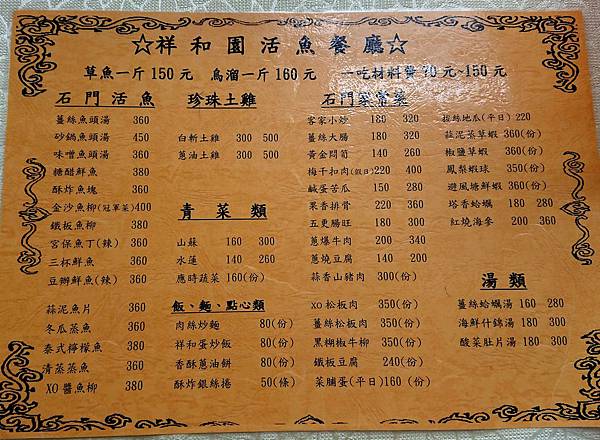 ☆祥和園活魚餐廳☆
草魚一斤150元 鳥溜一斤160元 一吃材料費70元~150元
石門活魚
薑絲魚頭湯 360
砂鍋魚頭湯 450
味噌魚頭湯 360
糖醋鮮魚 360
酥炸魚塊 360
金沙魚柳(冠軍菜)400
鐵板魚柳 380
宮保魚丁(辣) 360
三杯鮮魚 360
豆瓣鮮魚(辣) 360
蒜泥魚片 360
冬瓜蒸魚 360
泰式檸檬魚 380
清蒸蒸魚 360
XO醬魚柳 380
珍珠土雞
白斬土雞 300 500
蔥油土雞 300 500
青菜類
山蘇 160 300
水蓮 140 260
應時蔬菜 160(份)
飯、麵、點心類
肉絲炒麵 80(份)
祥和蛋炒飯 80(份)
香酥蔥油餅 80(份)
酥炸銀絲捲 50(條)
石門家常菜
客家小炒 180 320
薑絲大腸 180 320
黃金悶筍 140 260
梅干扣肉(假日)220 400
鹹蛋苦瓜 150 280
果香排骨 220 380
五更腸旺 180 300
蔥爆牛肉 200 340
蔥燒豆腐 140 200
蒜香山豬肉 300(份)
XO松板肉 350(份)
薑絲松板肉 350(份)
黑楜椒牛柳 350(份)
鐵板豆腐 240(份)
菜脯蛋(平日)160 (份)
拔絲地瓜(平日) 220
蒜泥蒸草蝦 360(份)
椒鹽草蝦 360(份)
鳳梨蝦球 350(份)
避風塘鮮蝦 360(份)
塔香蛤蠣 180 280
紅燒海參 200 360
湯類
薑絲蛤蠣湯 160 280
海鮮什錦湯 180 300
酸菜肚片湯 180 300